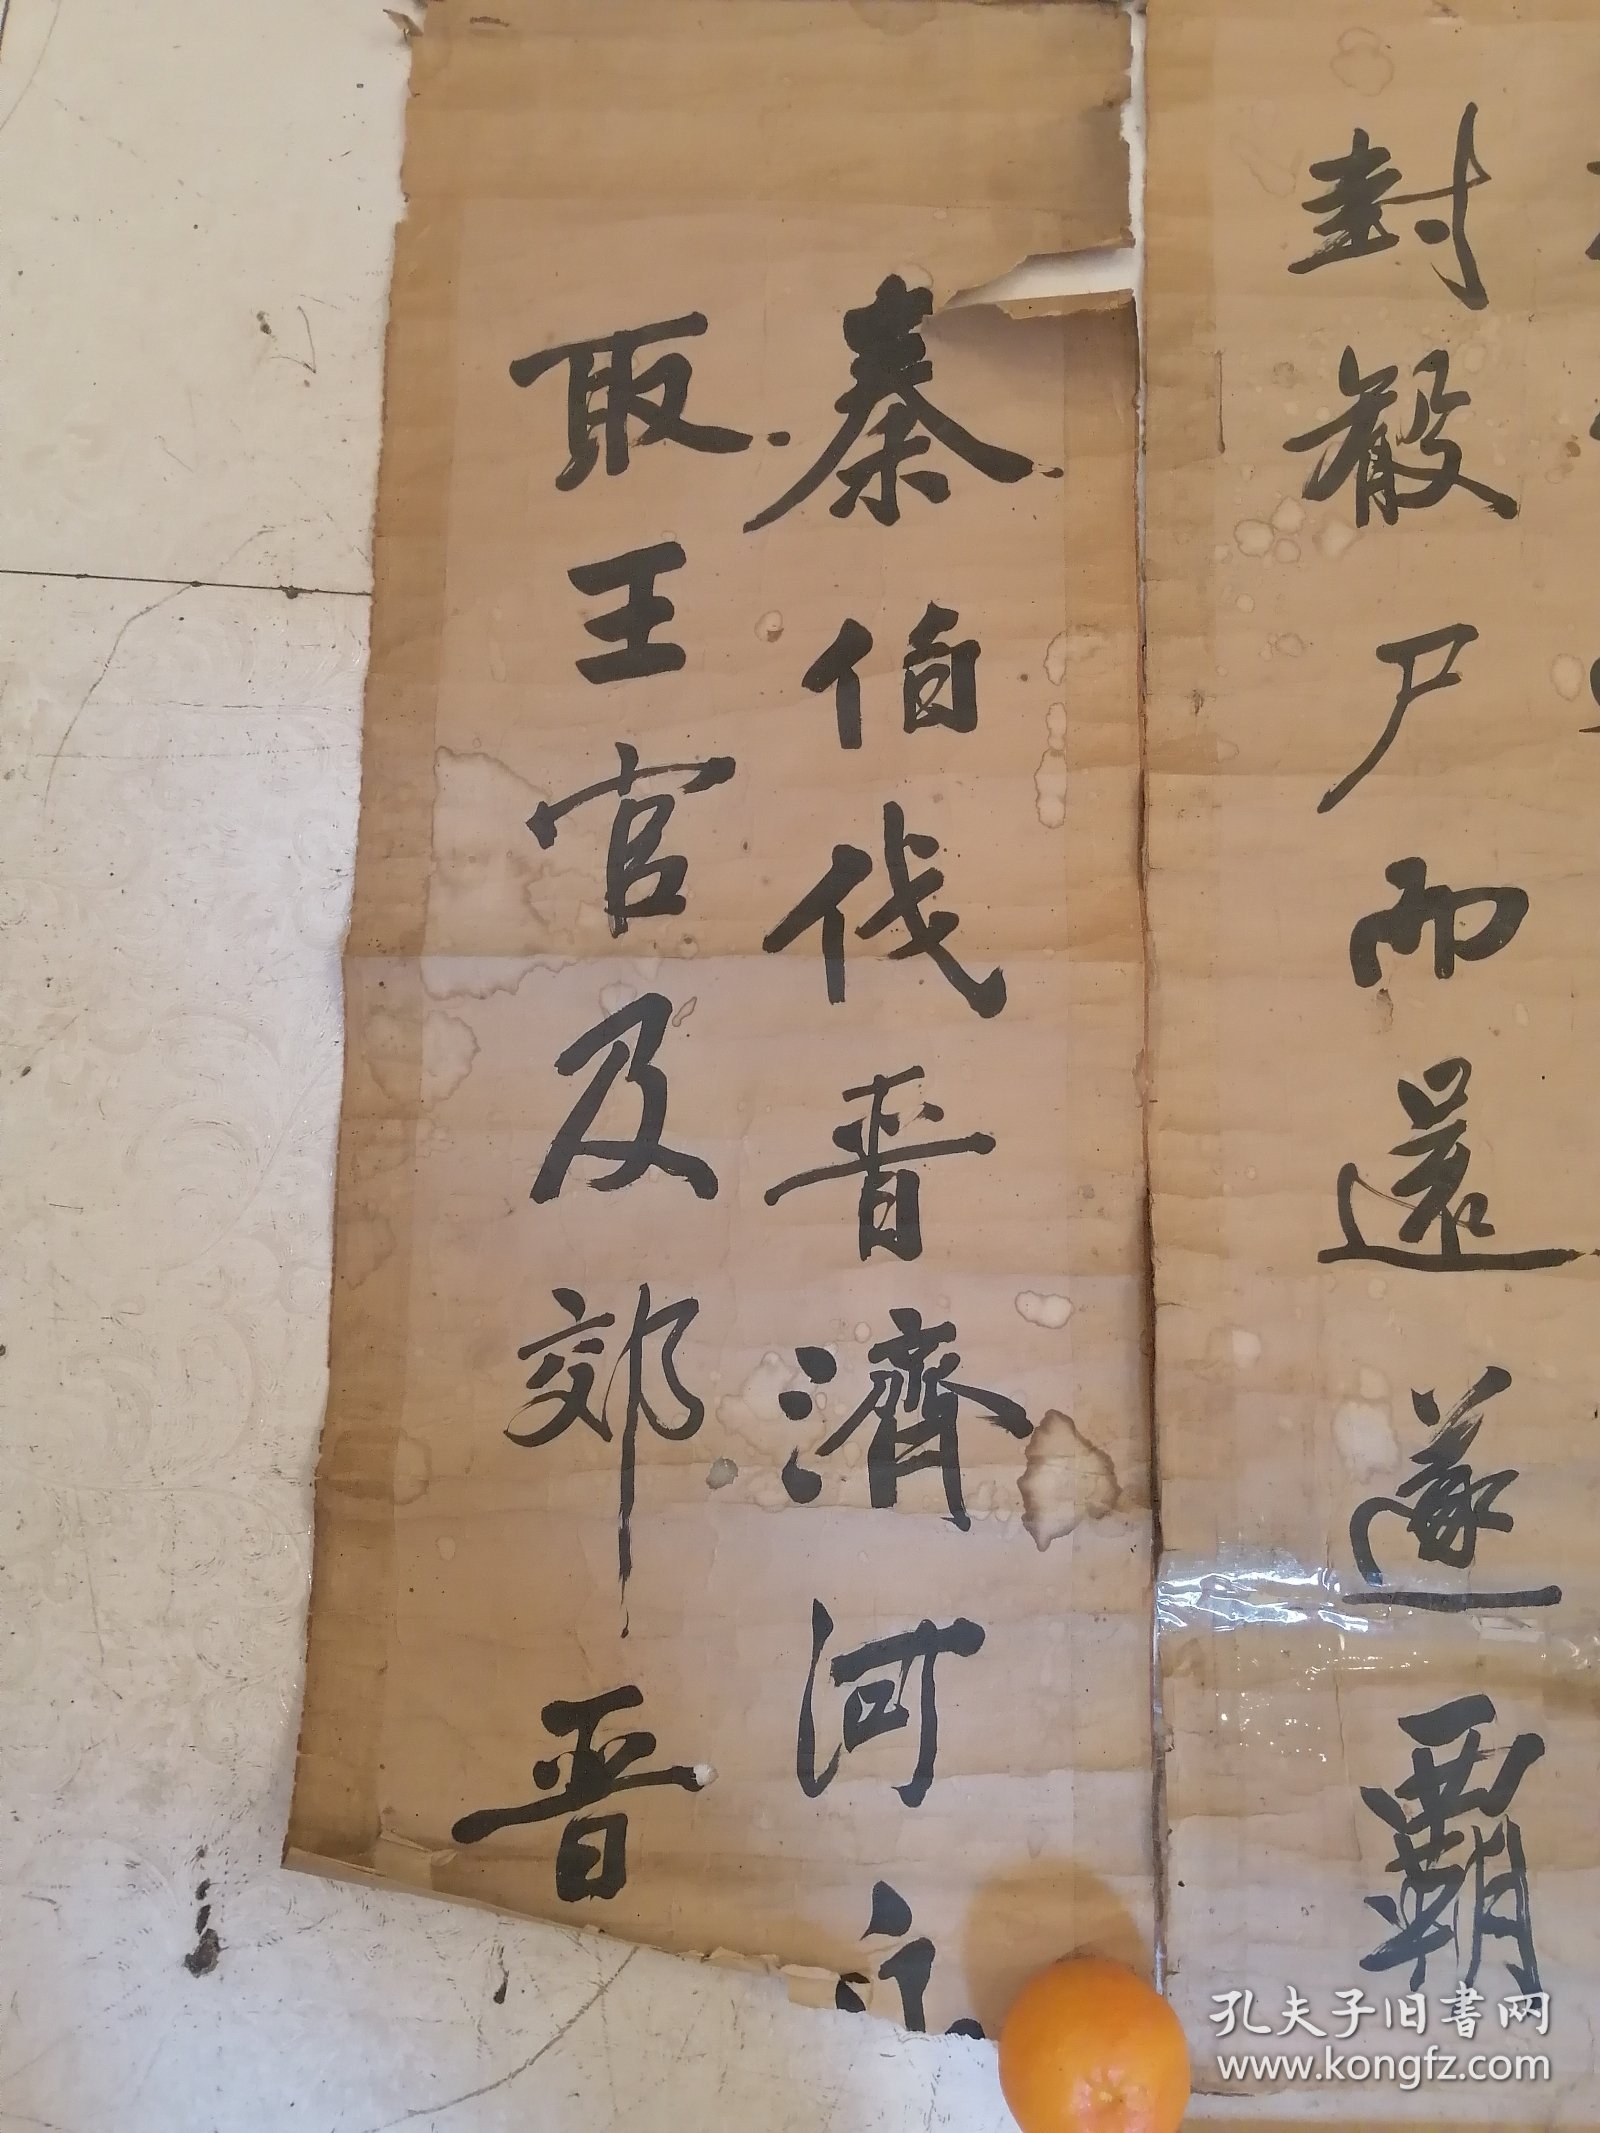 封殽尸而還遂霸
秦伯伐晋濟河
取王官及郊晋
孔夫子旧書网
www.kongfz.com